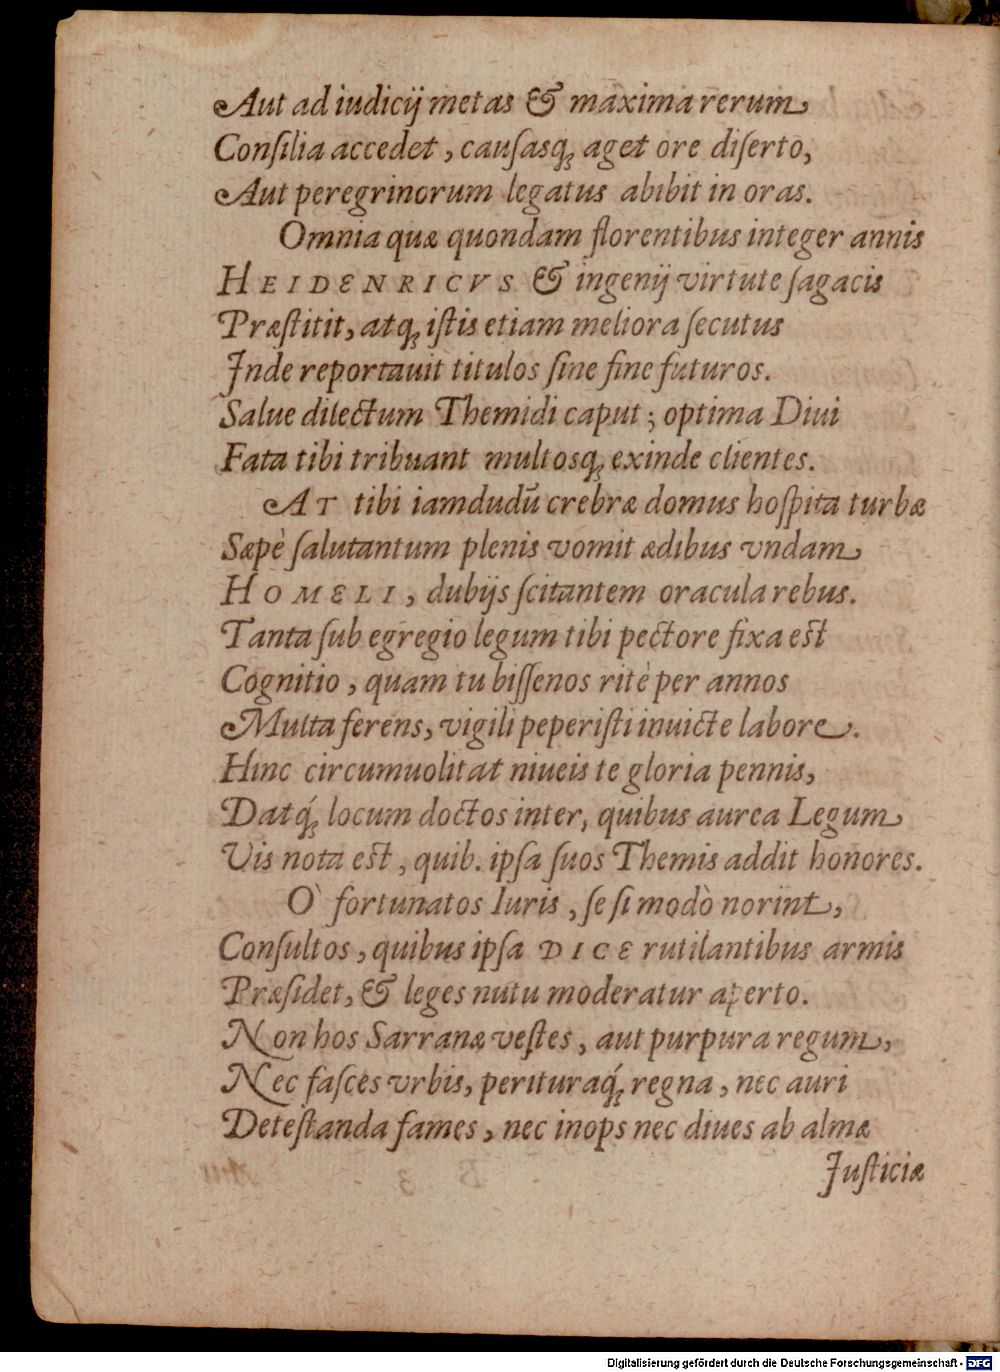 Aut ad iudicij metas & maxima rerum
Conſilia accedet, cauſasq́; aget ore diſerto,
Aut peregrinorum legatus abibit in oras.
Omnia quæ quondam florentibus integer annis
HEIDENRICVS & ingenij virtute ſagacis
Præſtitit, atq; iſtis etiam meliora ſecutus
Inde reportauit titulos ſine fine futuros.
Salue dilectum Themidi caput; optima Diui
Fata tibi tribuant multosq; exinde clientes.
AT tibi iamdudū crebræ domus hoſpita turbæ
Sæpè ſalutantum plenis vomit ædibus vndam
HOMELI, dubijs ſcitantem oracula rebus.
Tanta ſub egregio legum tibi pectore fixa est
Cognitio, quam tu biſſenos ritè per annos
Multa ferens, vigili peperiſti inuicte labore.
Hinc circumuolitat niueis te gloria pennis,
Datq́; locum doctos inter, quibus aurea Legum
Vis nota est, quib. ipſa ſuos Themis addit honores.
Ò fortunatos Iuris, ſe ſi modò norint,
Conſultos, quibus ipſa DICE rutilantibus armis
Præſidet, & leges nutu moderatur aperto.
Non hos Sarranæ veſtes, aut purpura regum,
Nec faſces vrbis, perituraq́; regna, nec auri
Deteſtanda fames, nec inops nec diues ab almæ
Iuſticiæ
Digitalisierung gefördert durch die Deutsche Forschungsgemeinschaft - DFG